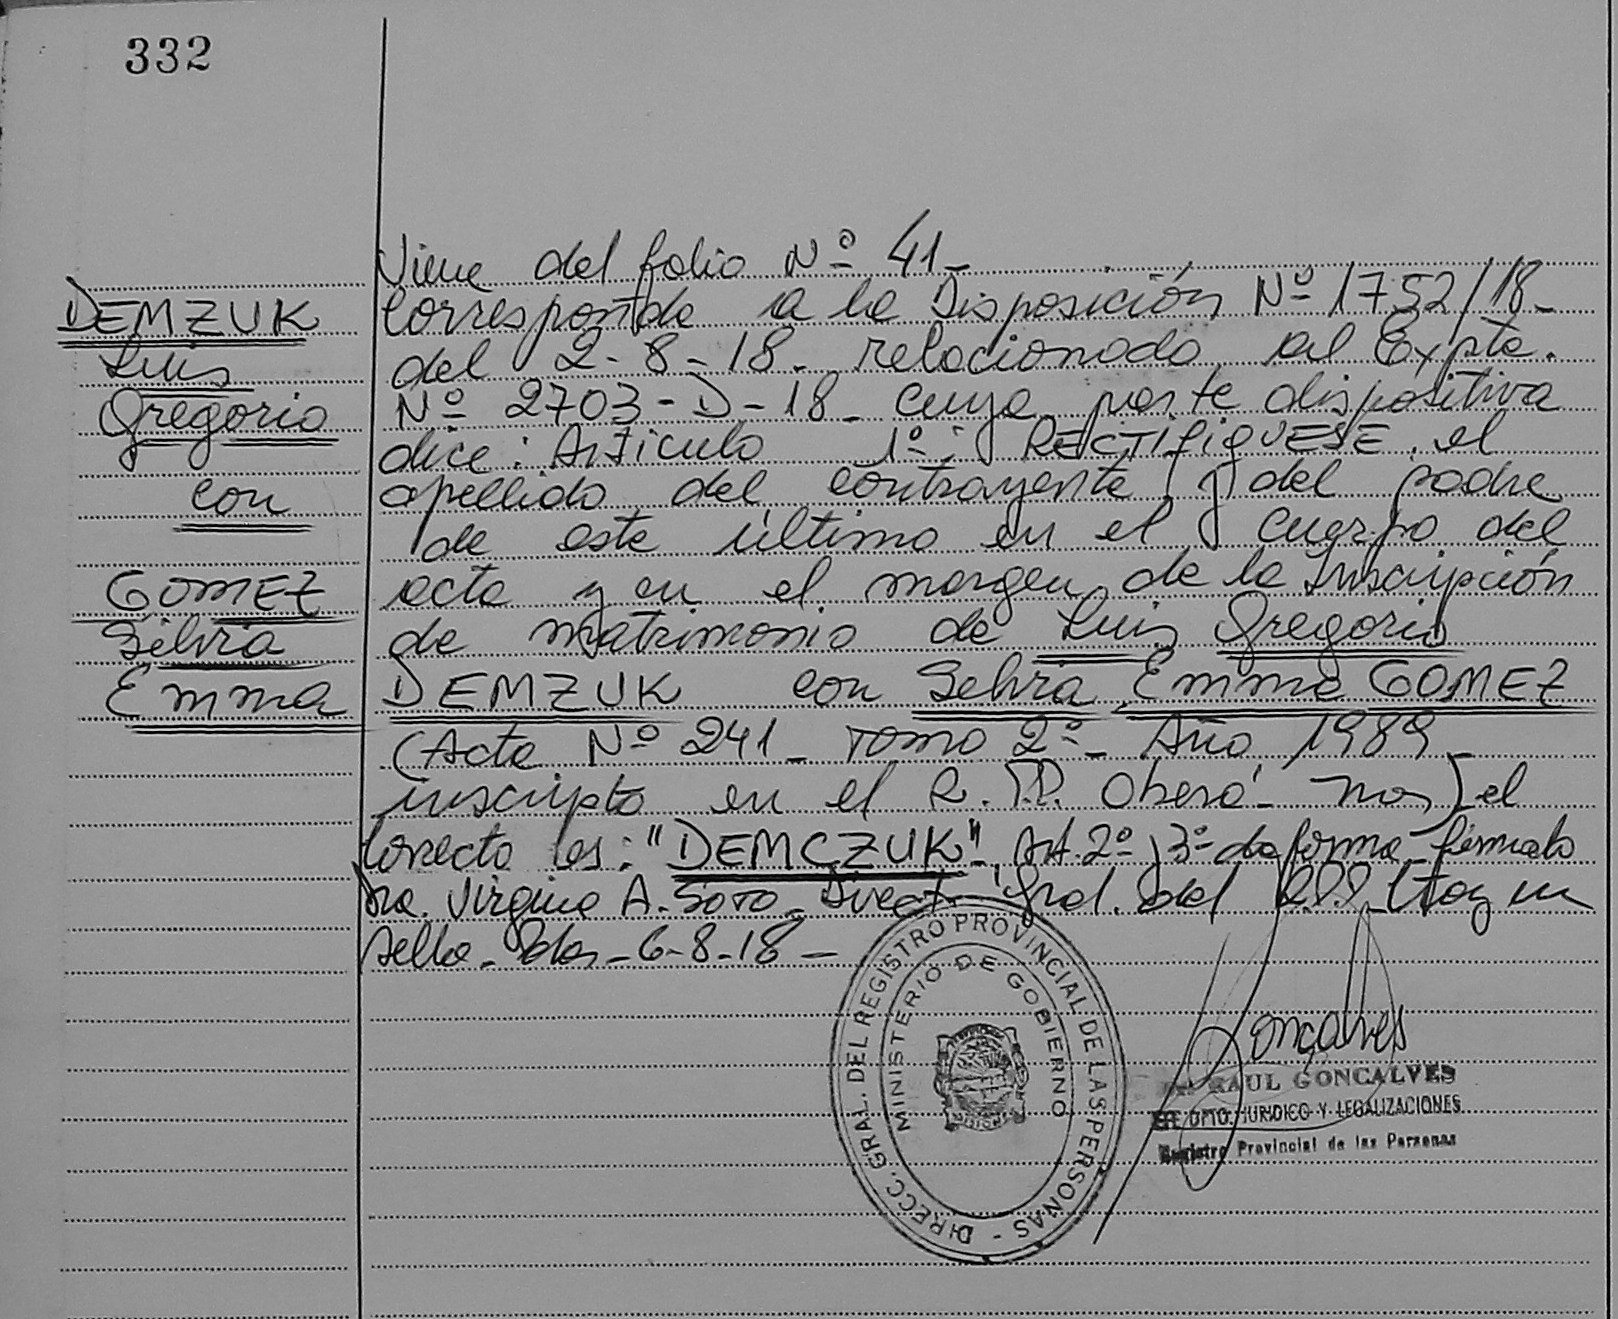 332
DEMZUK
Luis
Gregorio
con
GOMEZ
Silvia
Emma
Viene del folio Nº 41-
Corresponde a la Disposición Nº 1752/18-
del 2-8-18- relacionado al Expte.
Nº 2703-D-18- cuya parte dispositiva
dice: Artículo 1º: RECTIFIQUESE, el
apellido del contrayente y del padre
de este último en el cuerpo del
acta y en el margen de la Inscripción
de matrimonio de Luis Gregorio
DEMZUK con Selvia Emma GOMEZ
(Acta Nº 241- Tomo 2º- Año 1989-
inscripta en el R.P.P. Oberá- Mnes) el
correcto es: "DEMCZUK"- Art. 2º y 3º de forma- firmado
Dra. Virginia A. Soto- Direct. Gral. del R.P.P. Hay un
sello- Pdas-6-8-18-
DIRECC. GRAL. DEL REGISTRO PROVINCIAL DE LAS PERSONAS -
MINISTERIO DE GOBIERNO
MISIONES
Gonçalves
RAUL GONCALVES
DPTO. JURIDICO Y LEGALIZACIONES
Registro Provincial de las Personas